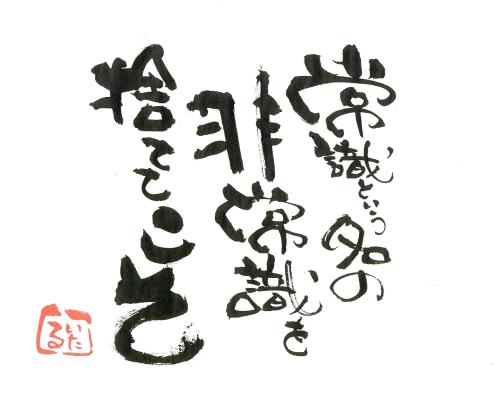 常識という名の
非常識を
捨ててこそ